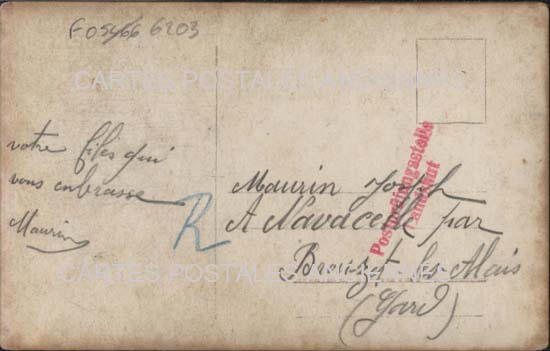 F05466 6203
CARTES POSTALES ANCIENNES
votre fils qui
vous enbrasse
Maurin
R
Maurin Joseph
A Navacelle par
Brouzet les Alais
(Gard)
Postprüfungsstelle
Landshut
CARTES POSTALES ANCIENNES